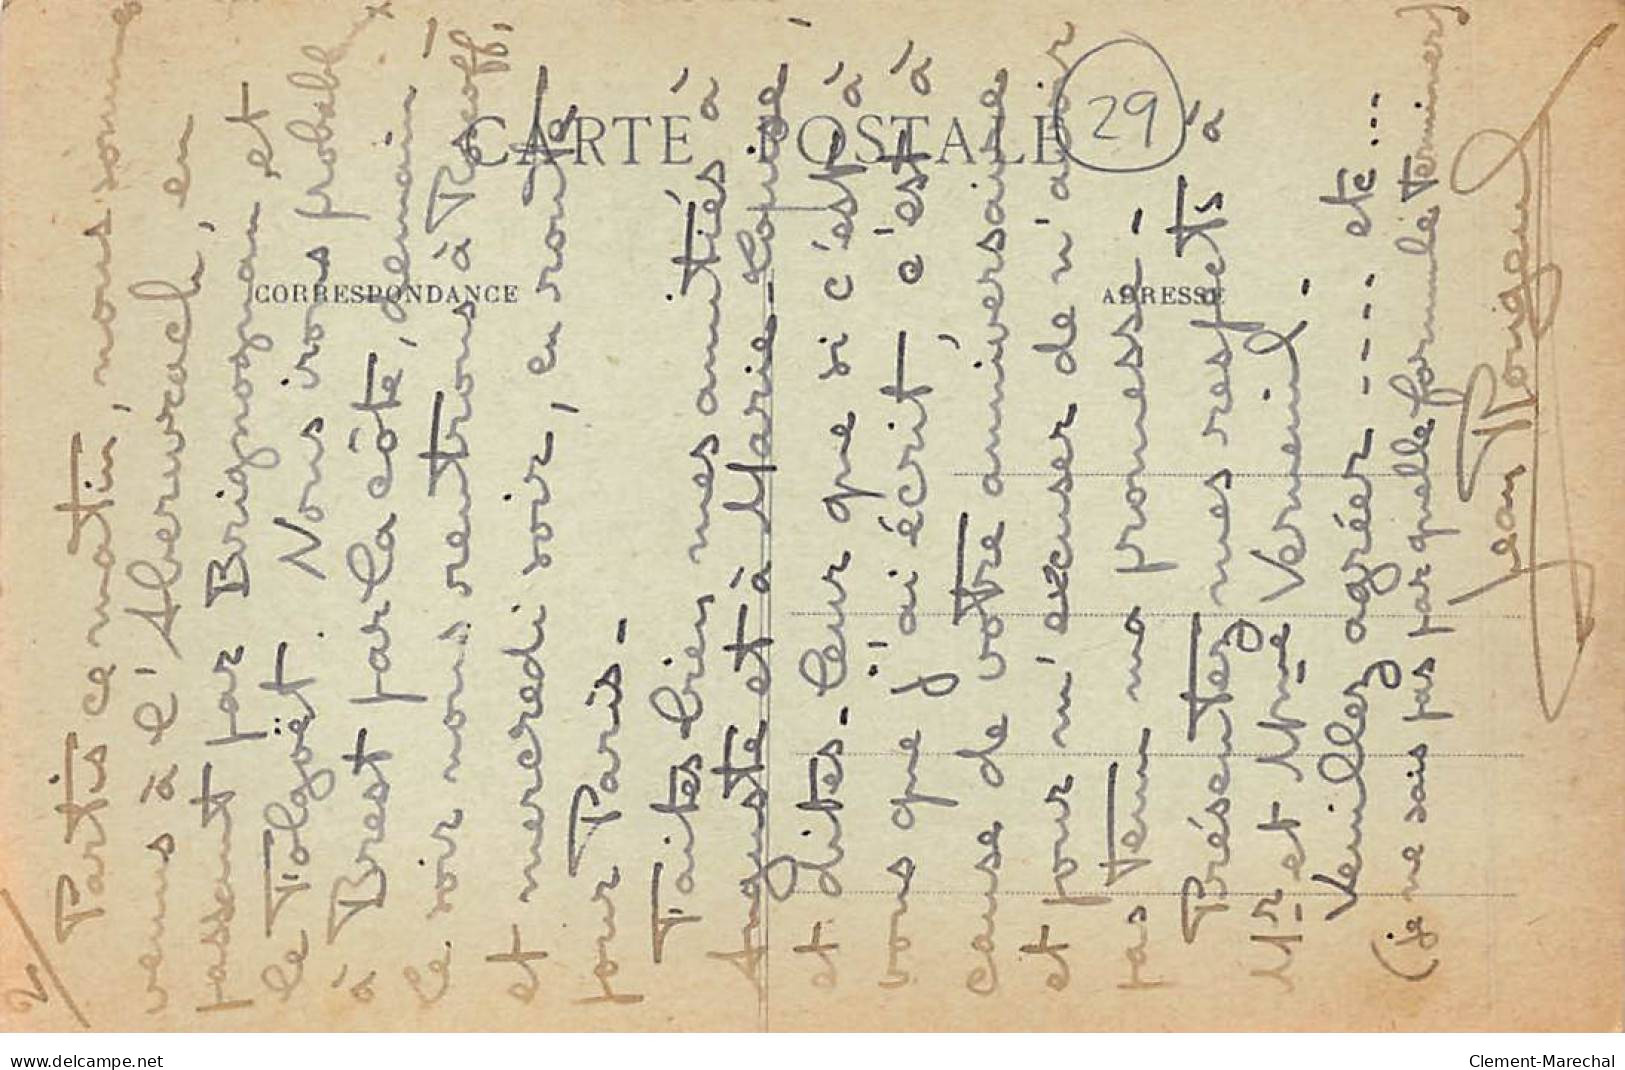 2/
Partis ce matin, nous sommes
venus à l'Aberwrach, en
passant par Brignognan et
le Folgoët. Nous irons probablx
à Brest par la côte, demain
le soir nous rentrons à Roscoff,
et mercredi soir, en route
pour Paris-
Faites bien mes amitiés à
Auguste et à Marie-Louise
et dites-leur que si c'est à
vous que j'ai écrit, c'est à
cause de votre anniversaire
et pour m'excuser de n'avoir
pas tenu ma promesse-
Présentez mes respects à
Mr et Mme Verneuil-
Veuillez agréer ---- etc...
(je ne sais pas par quelle formule terminer)
Jean
CARTE POSTALE
29
CORRESPONDANCE
ADRESSE
www.delcampe.net
Clement-Marechal